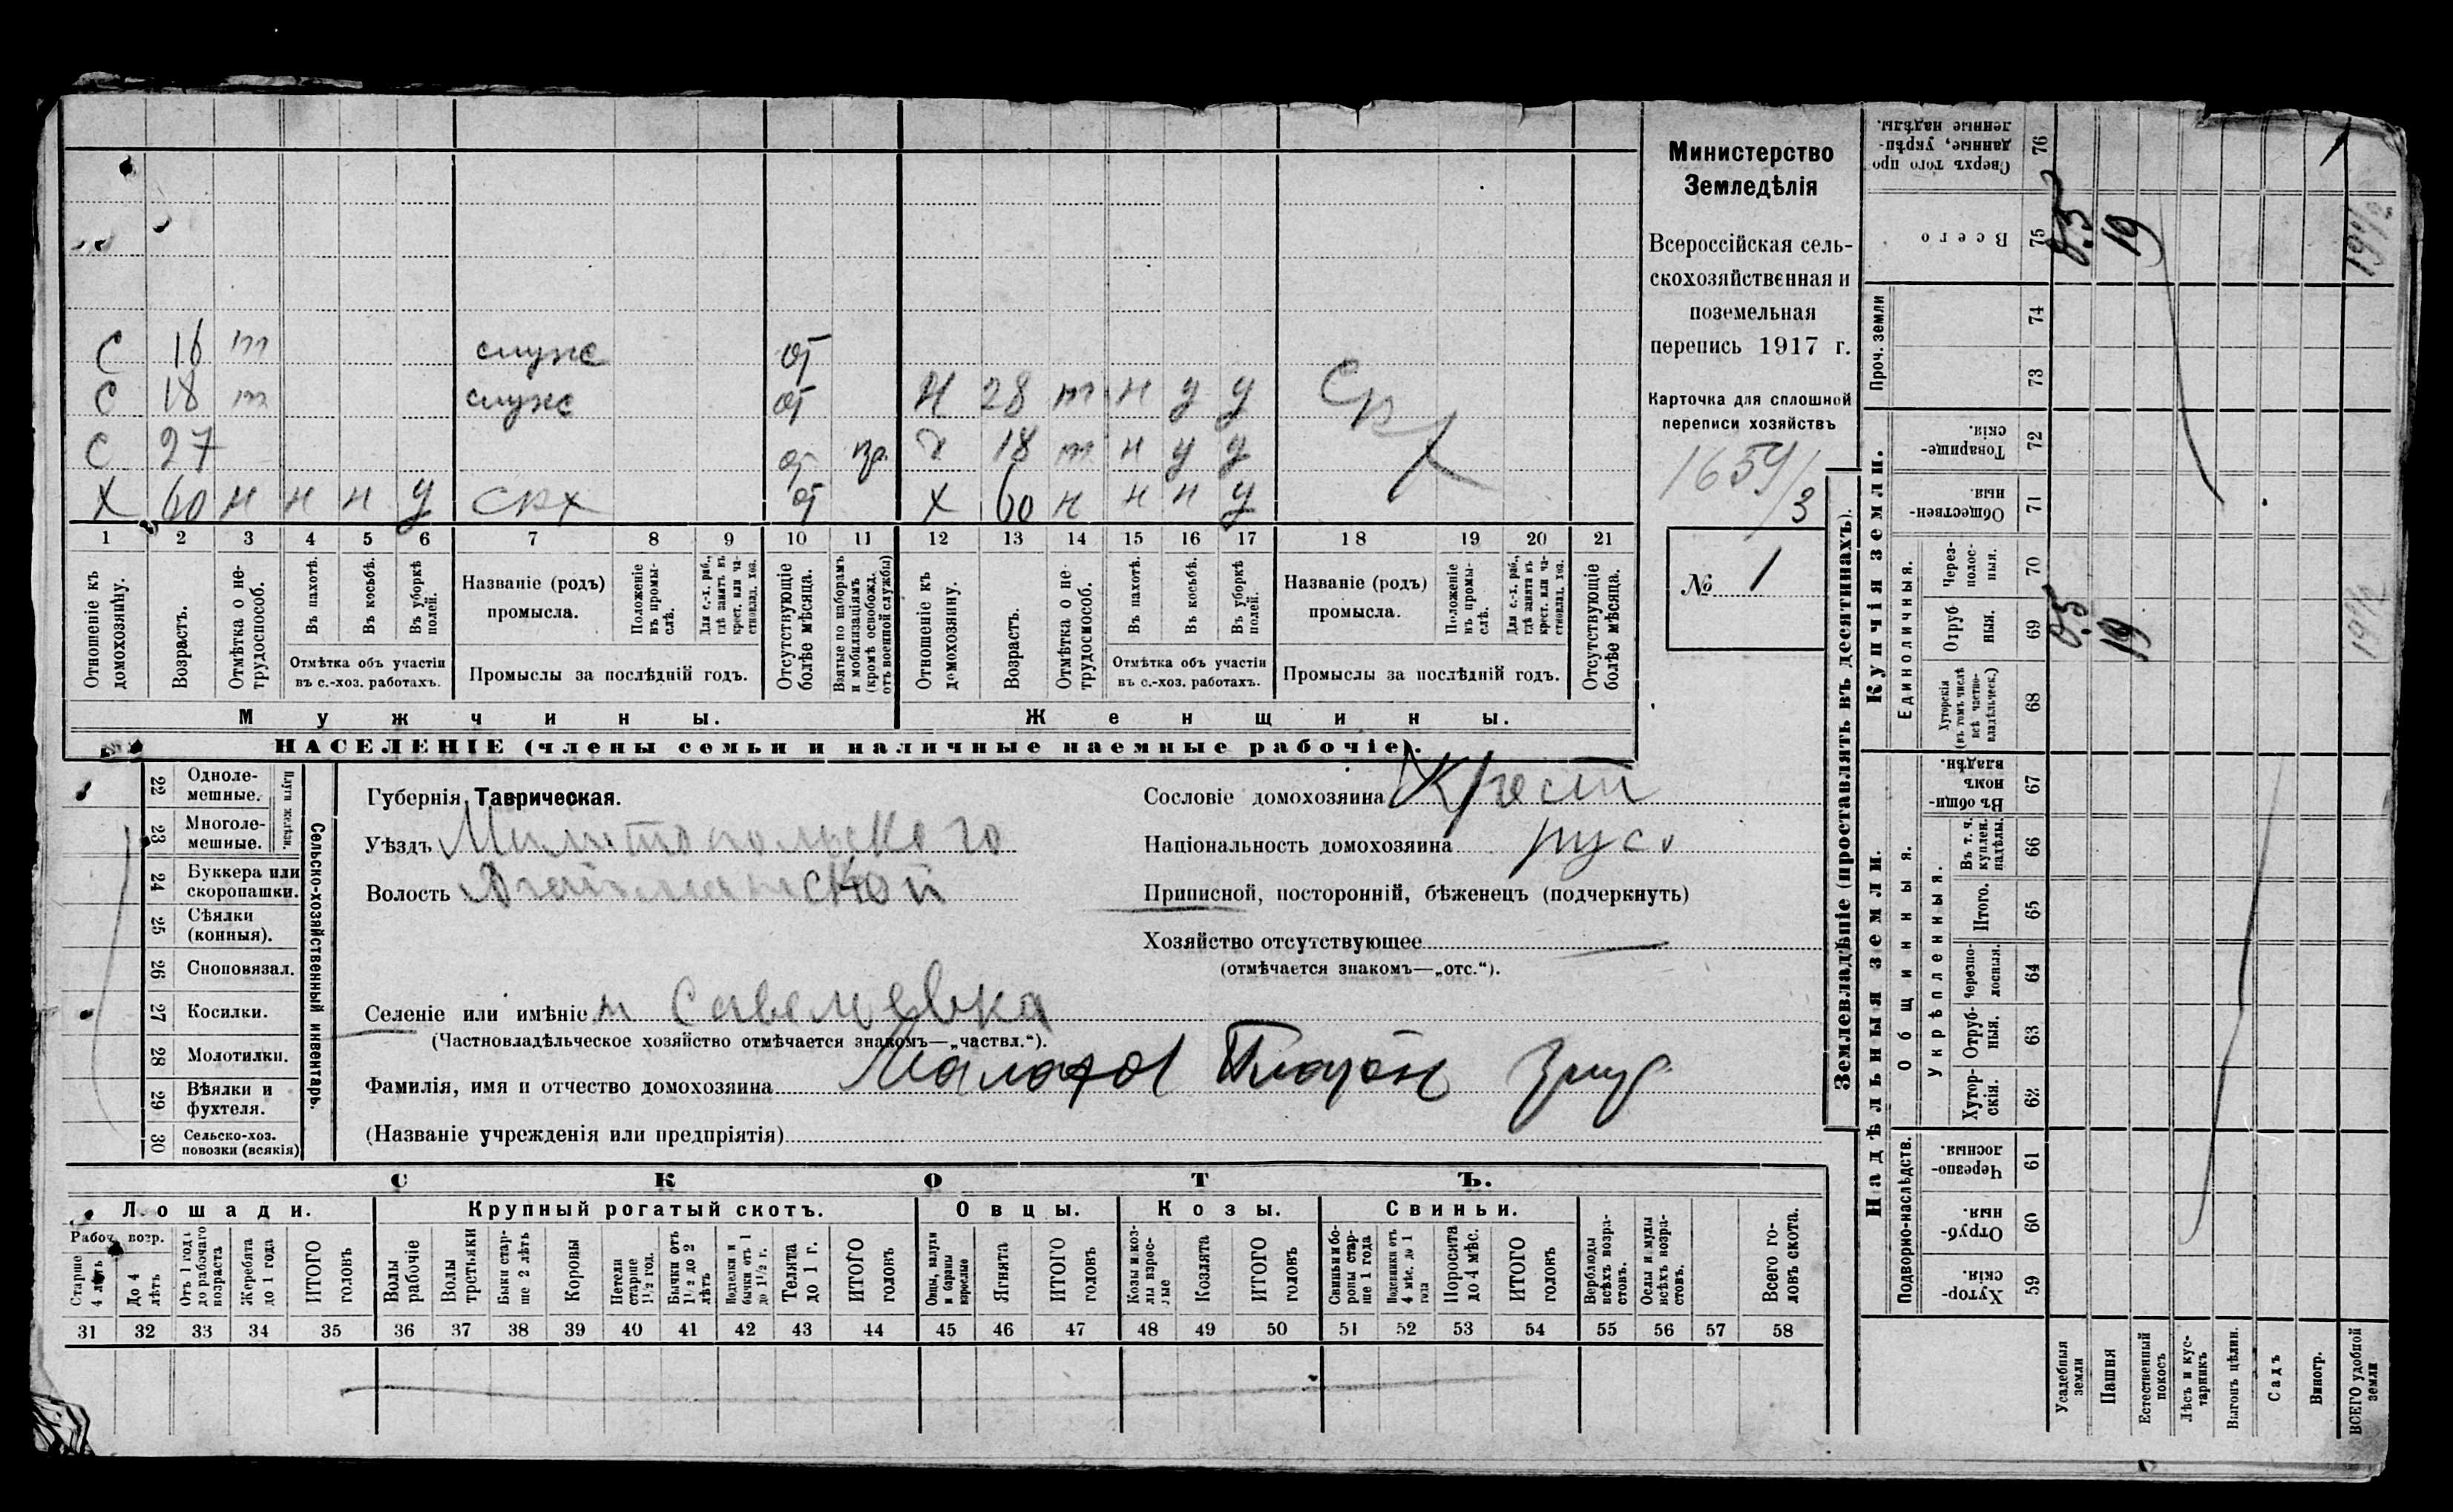 Министерство
Земледѣлія
Всероссійская сель-
скохозяйственная и
поземельная
перепись 1917 г.
Карточка для сплошной
переписи хозяйствъ
1659/3
№ 1
С 16 т служ от
С 18 т служ от Н 28 т н у у
С 27 от вз. 18 т н у у
Х 60 н н н у срх от Х 60 н н н у
Ср Х
1 2 3 4 5 6 7 8 9 10 11 12 13 14 15 16 17 18 19 20 21
Отношеніе къ домохозяину.
Возрастъ.
Отмѣтка о не-трудоспособ.
Въ пахотѣ.
Въ косьбѣ.
Въ уборкѣ полей.
Отмѣтка объ участіи
въ с.-хоз. работахъ.
Названіе (родъ)
промысла.
Положеніе въ промы-слѣ.
Для с.-х. раб., гдѣ занятъ въ крест. или ча-стновлад. хоз.
Промыслы за послѣдній годъ.
Отсутствующіе болѣе мѣсяца.
Взятые по наборамъ и мобилизаціямъ (кромѣ освобожд. отъ военной службы)
Отношеніе къ домохозяину.
Возрастъ.
Отмѣтка о не-трудоспособ.
Въ пахотѣ.
Въ косьбѣ.
Въ уборкѣ полей.
Отмѣтка объ участіи
въ с.-хоз. работахъ.
Названіе (родъ)
промысла.
Положеніе въ промы-слѣ.
Для с.-х. раб., гдѣ занята въ крест. или ча-стновлад. хоз.
Промыслы за послѣдній годъ.
Отсутствующіе болѣе мѣсяца.
Мужчины.
Женщины.
НАСЕЛЕНІЕ (члены семьи и наличные наемные рабочіе).
Сельско-хозяйственный инвентарь.
Плуги желѣзн.
22 Однолемешные.
23 Многолемешные.
24 Буккера или скоропашки.
25 Сѣялки (конныя).
26 Сноповязал.
27 Косилки.
28 Молотилки.
29 Вѣялки и фухтеля.
30 Сельско-хоз. повозки (всякія)
Губернія Таврическая.
Уѣздъ Милитопольского
Волость
Селеніе или имѣніе Савельевка
(Частновладѣльческое хозяйство отмѣчается знакомъ—„частвл.“).
Фамилія, имя и отчество домохозяина
(Названіе учрежденія или предпріятія)
Сословіе домохозяина Крест
Національность домохозяина русс
Приписной, посторонній, бѣженецъ (подчеркнуть)
Хозяйство отсутствующее —
(отмѣчается знакомъ—„отс.“).
СКОТЪ.
Лошади. Крупный рогатый скотъ. Овцы. Козы. Свиньи.
Рабоч. возр.
Старше 4 лѣтъ
До 4 лѣтъ
Отъ 1 года до рабочаго возраста
Жеребята до 1 года
ИТОГО головъ
Волы рабочіе
Волы третьяки
Быки стар-ше 2 лѣтъ
Коровы
Нетели старше 1½ год.
Бычки отъ 1½ до 2 лѣтъ
Нетелки и бычки отъ 1 до 1½ г.
Телята до 1 г.
ИТОГО головъ
Овцы, валухи и бараны взрослые
Ягнята
ИТОГО головъ
Козы и коз-лы взрос-лые
Козлята
ИТОГО головъ
Свиньи и бо-ровы стар-ше 1 года
Подсвинки отъ 4 мѣс. до 1 года
Поросята до 4 мѣс.
ИТОГО головъ
Верблюды всѣхъ возра-стовъ.
Ослы и мулы всѣхъ возра-стовъ.
Всего го-ловъ скота.
31 32 33 34 35 36 37 38 39 40 41 42 43 44 45 46 47 48 49 50 51 52 53 54 55 56 57 58
Землевладѣніе (проставлять въ десятинахъ).
Надѣльныя земли.
Купчія земли.
Проч. земли
Подворно-наслѣдств.
Общинныя.
Укрѣпленныя.
Единоличныя.
76 Сверхъ того про-данные, укрѣп-ленные надѣлы.
75 Всего
74
73
72 Товарище-скія.
71 Обществен-ныя.
70 Через-полос-ныя.
69 Отруб-ныя.
68 Хуторскія (въ томъ числѣ всѣ частно-владѣльческ.)
67 Въ общин-номъ владѣн.
66 Въ т. ч. куплен. надѣлы.
65 Итого.
64 Черезпо-лосныя.
63 Отруб-ныя.
62 Хутор-скія.
61 Черезпо-лосныя.
60 Отруб-ныя.
59 Хутор-скія.
Усадебныя земли
Пашня
Естественный покосъ
Лѣсъ и кус-тарникъ
Выгонъ цѣлин.
Садъ
Виногр.
ВСЕГО удобной земли
0.5
19
19½
0.5
19
19½
1